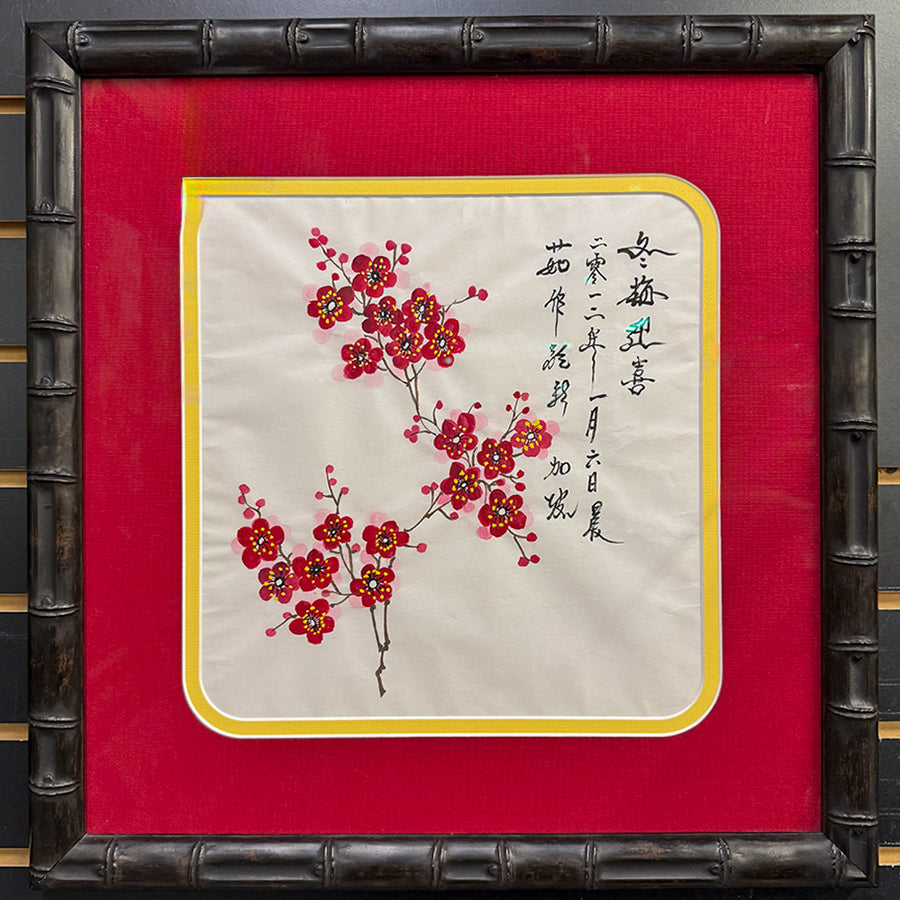 冬梅報喜
二零一二年一月六日晨
茹作於新加坡